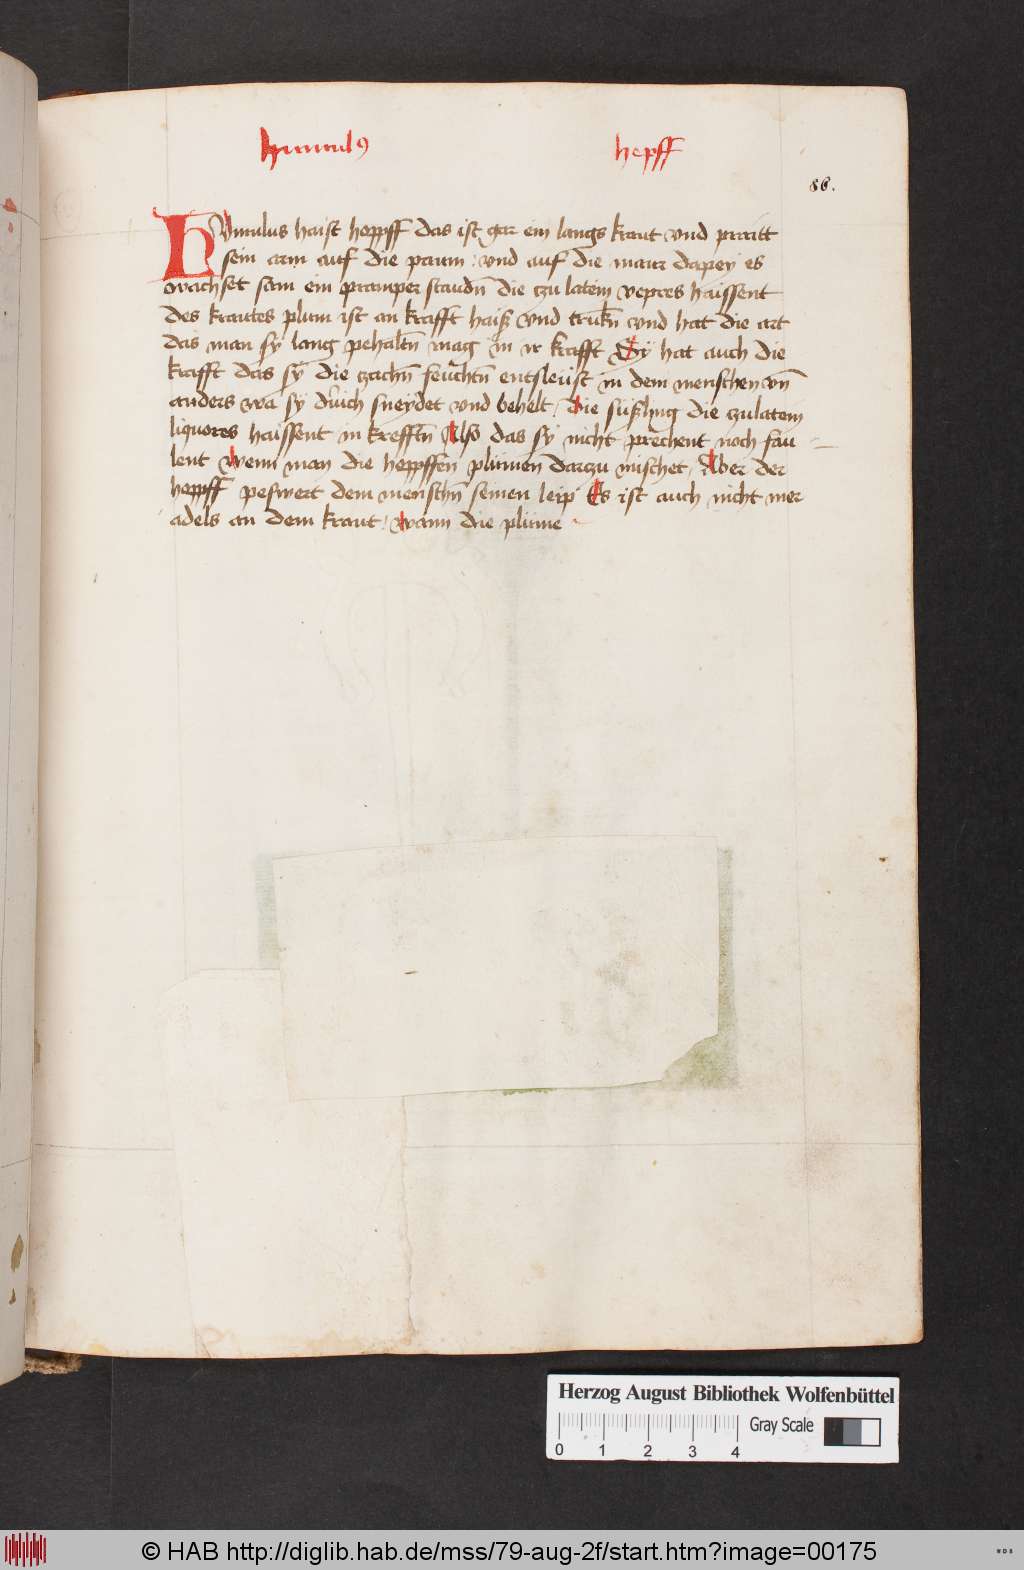 humulꝰ hepff
86.
HVmulus haist hopff das ist gar ein langs kraut vnd praitt
sein arm auf die paum / vnd auf die maur dapey es
wachset sam ein pramper staudn̄ die czu latem vepres haissent
des krautes plum ist an krafft haiß vnd trukn̄ vnd hat die art
das man sy lang pehaltn̄ mag in ir krafft Sy hat auch die
krafft das sy die zachn̄ feuchtn̄ entsleüst in dem menschen vn̄
anders wa sy durich sneydet vnd behelt / die süßling die czulatem
liquores haissent in krefftn̄ Also das sy nicht prechent noch fau
lent wenn man die hopffen plumen darzu mischet / Aber der
hopff peswert dem menschn̄ seinen leip Es ist auch nicht mer
adels an dem kraut / wann die plume
Herzog August Bibliothek Wolfenbüttel
Gray Scale
0 1 2 3 4
© HAB http://diglib.hab.de/mss/79-aug-2f/start.htm?image=00175